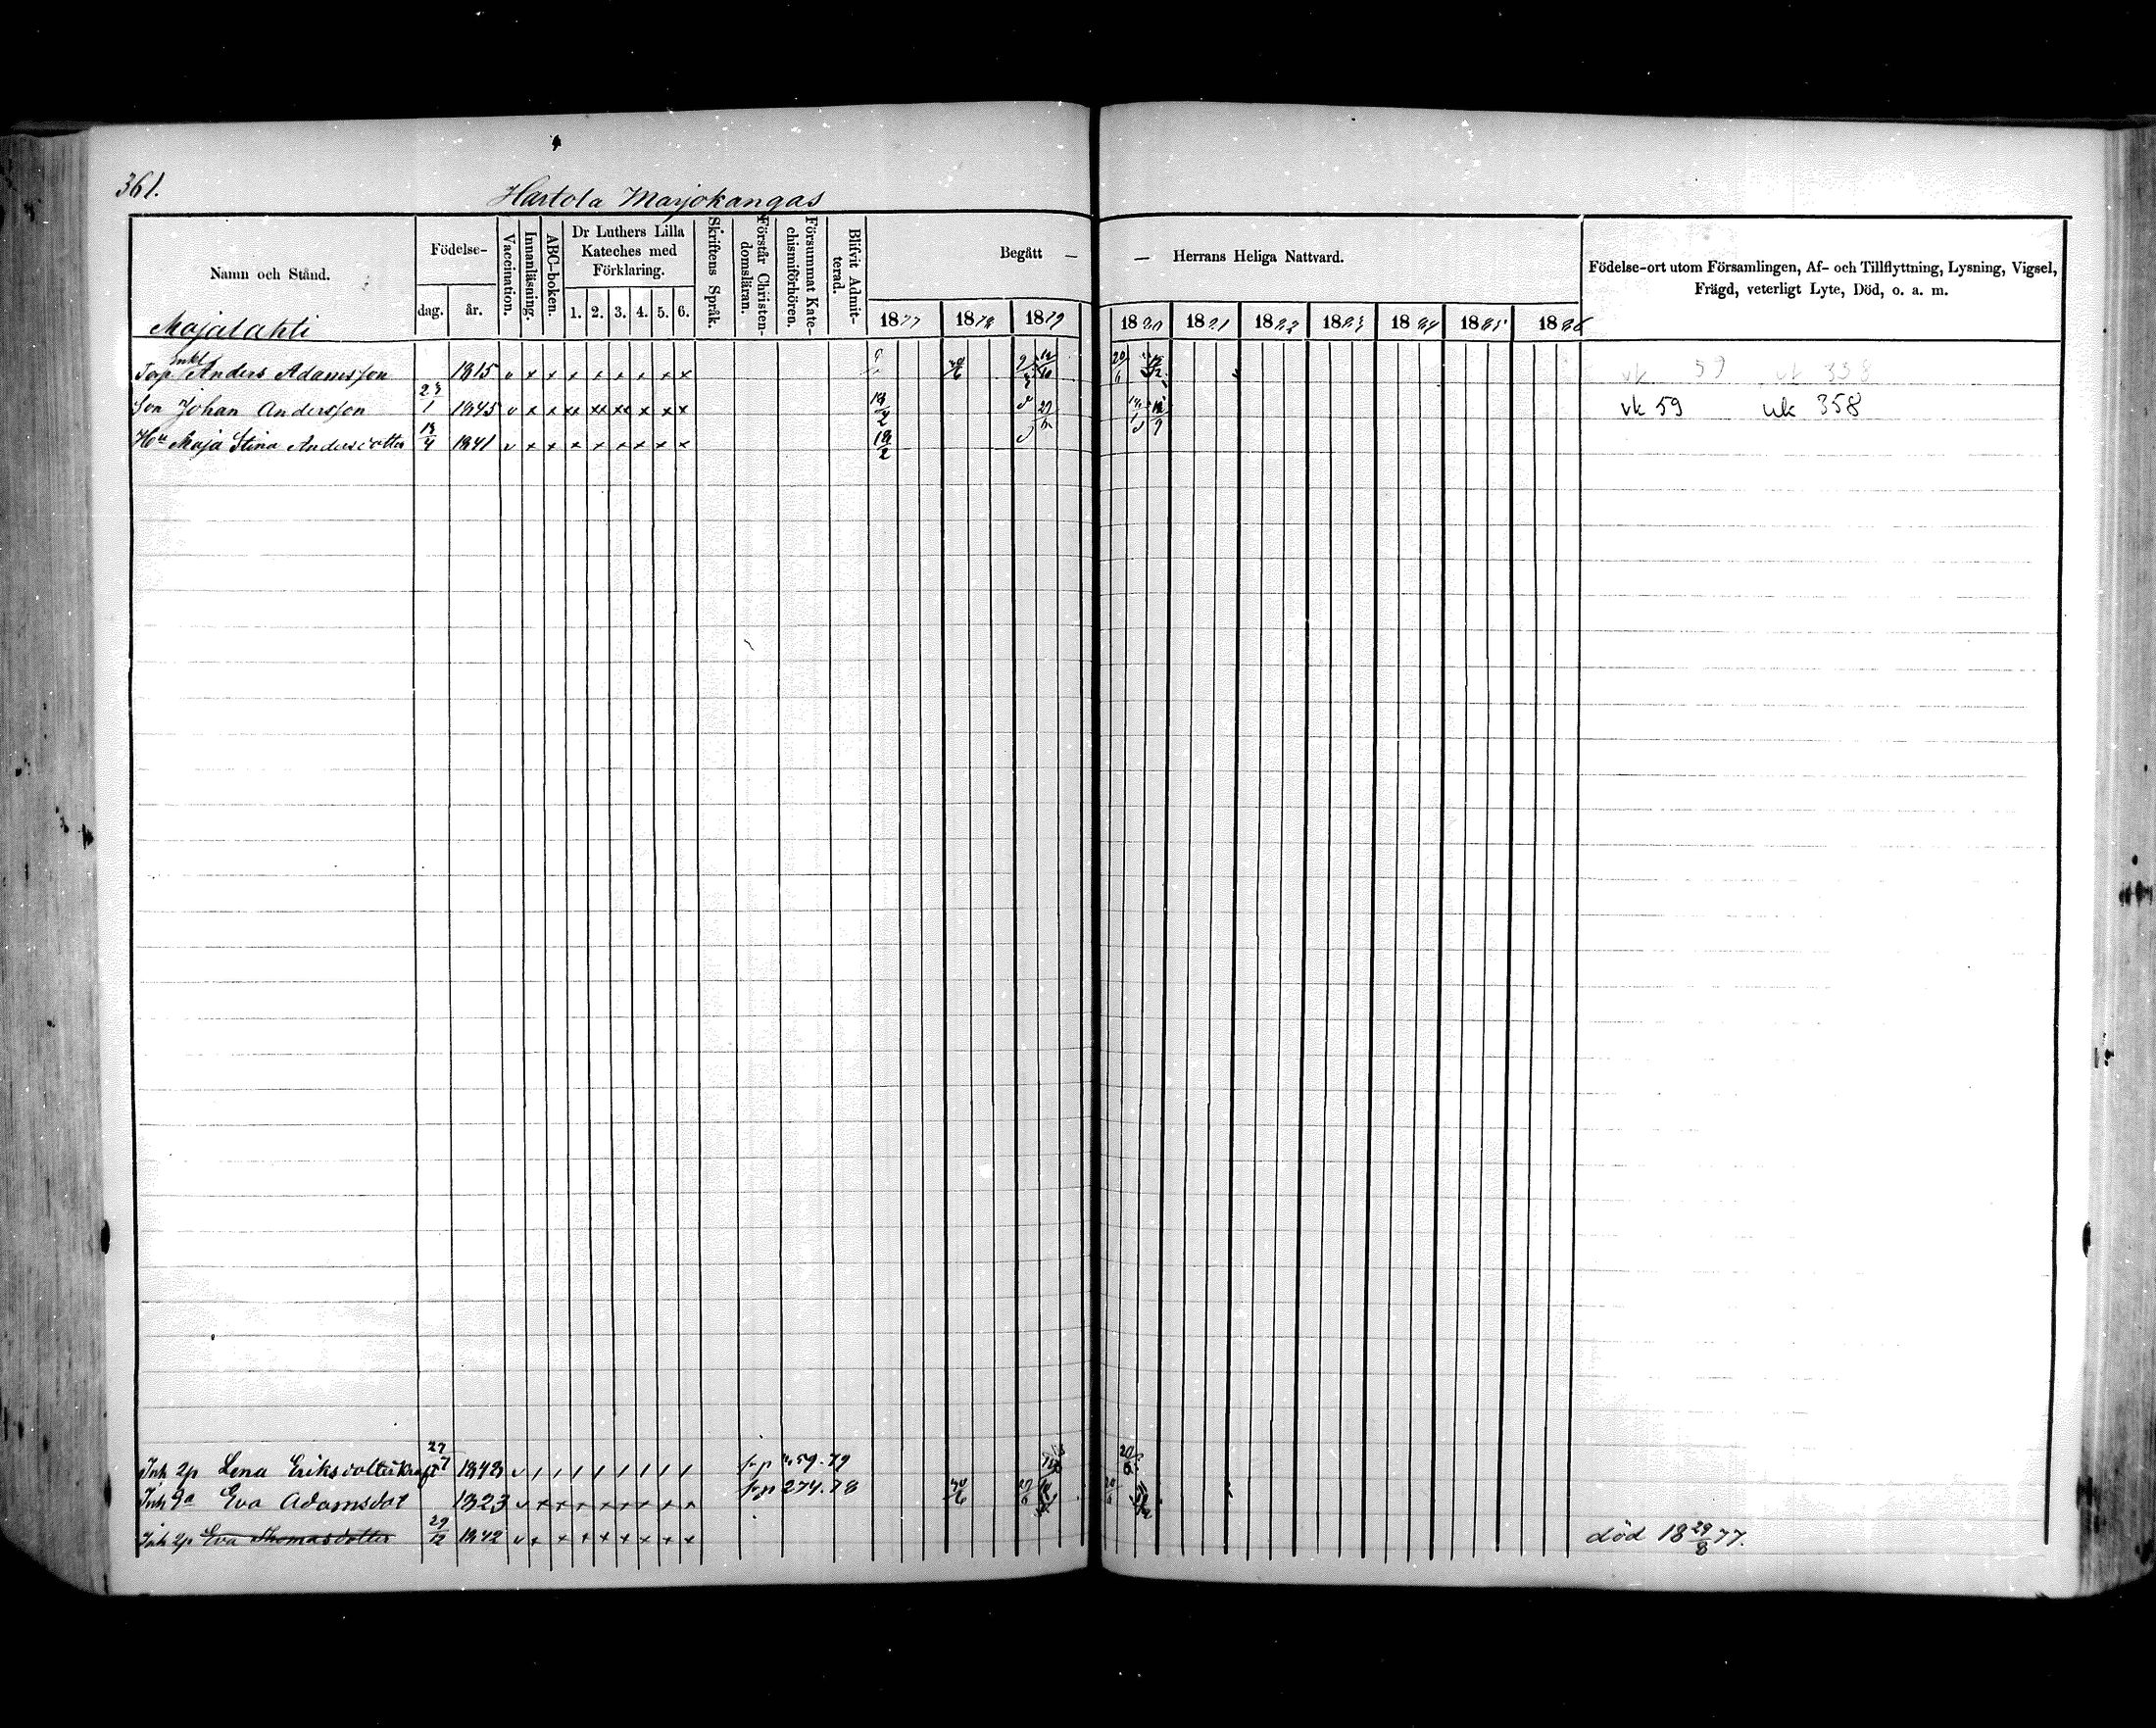 361.
Hartola Marjokangas
Namn och Stånd.
Födelse-
dag. år.
Vaccination.
Innanläsning.
ABC-boken.
Dr Luthers Lilla
Kateches med
Förklaring.
1. 2. 3. 4. 5. 6.
Skriftens Språk.
Förstår Christen-
domsläran.
Försummat Kate-
chismiförhören.
Blifvit Admit-
terad.
Begått —
— Herrans Heliga Nattvard.
1877 1878 1879 1880 1881 1882 1883 1884 1885 1886
Födelse-ort utom Församlingen, Af- och Tillflyttning, Lysning, Vigsel,
Frägd, veterligt Lyte, Död, o. a. m.
Majalahti
Enkl
Torp Anders Adamsson 1815 v x x x x x x x x
vk 59 358
Son Johan Andersson 23/1 1845 v x x xx xx xx x x x 18/2 27/6
vk 59 uk 358
Hu Maja Stina Andersdotter 13/4 1841 v x x x x x x x x 18/2
Inh 2p Lena Eriksdotter 27/7 1843 v / / / / / / / / 59.79 20/6
Inh Eva Adamsdot 1823 v x x x x x x x x 274.78 30/6 20/6
Inh 2p Eva Thomasdotter 29/12 1842 v x x x x x x x död 18 29/8 77.